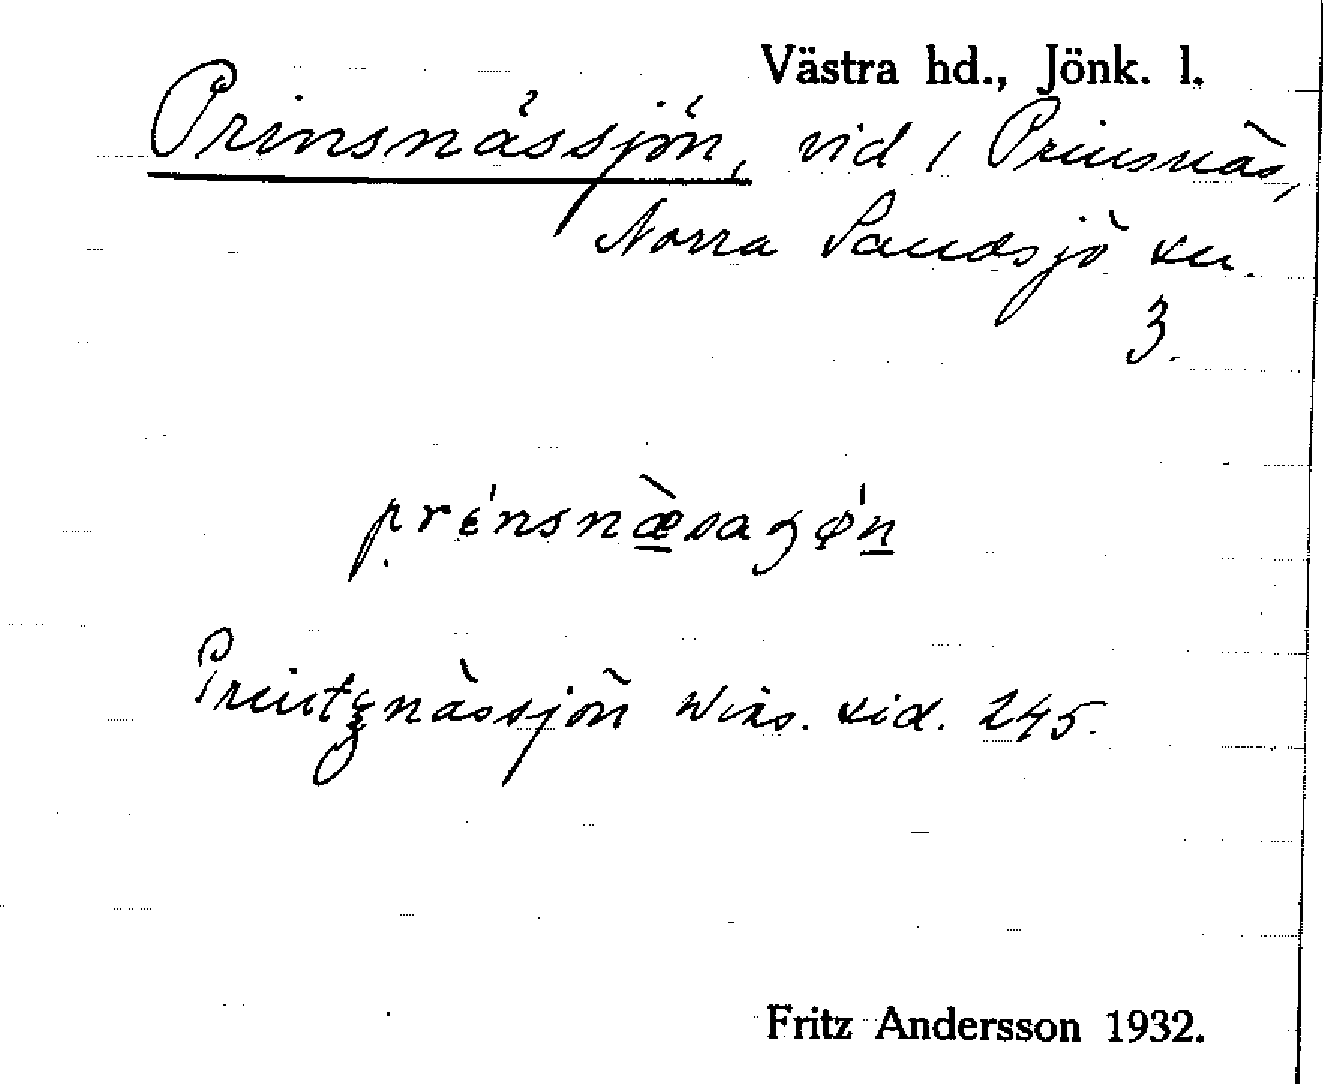 Västra hd., Jönk. l.
Prinsnässjön, vid 1 Prinsnäs,
Norra Sandsjö sn.
3.
prɛ́nsnæ̀saʒǿn
Printznässjön Wies. sid. 245.
Fritz Andersson 1932.